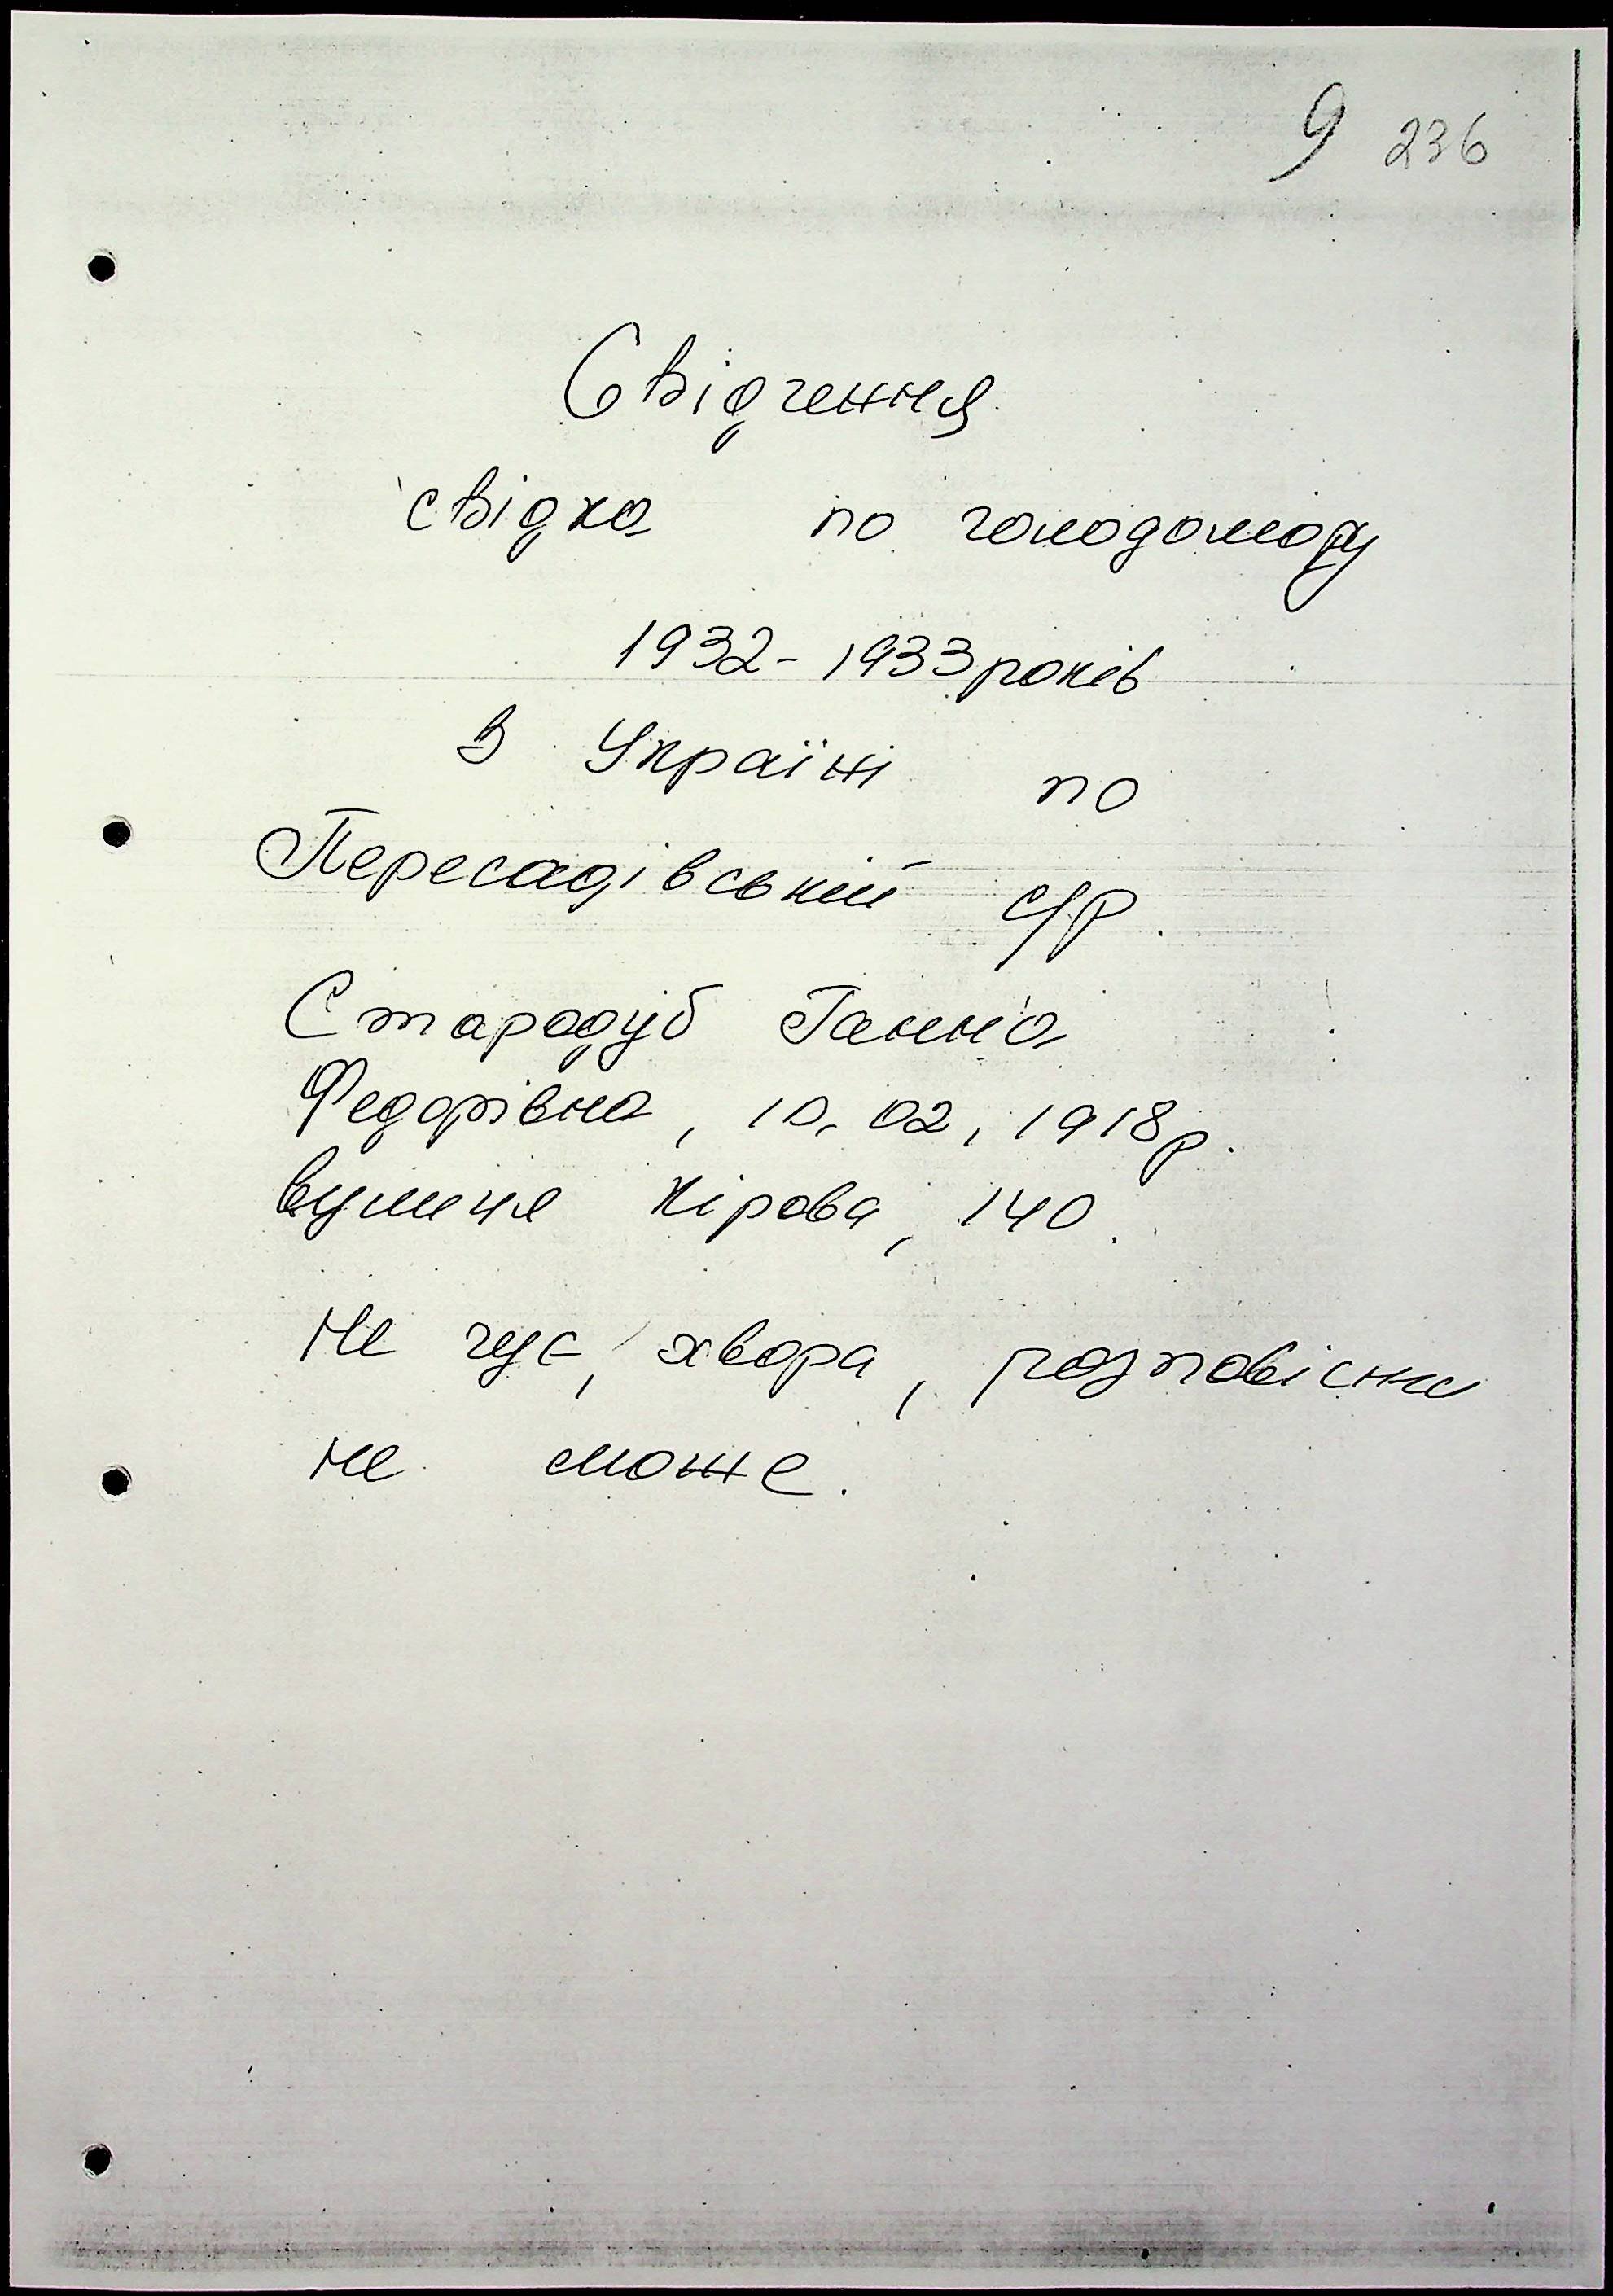 9 236
Свідчення
свідка по голодомору
1932-1933 років
в Україні по
Пересадівській с/р.
Стародуб Ганна
Федорівна, 10.02.1918 р.
вулиця Кірова, 140.
Не чує, хвора, розповісти
не може.